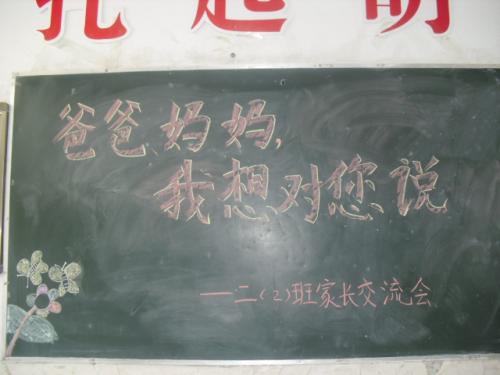 爸爸妈妈,
我想对您说
——二(2)班家长交流会